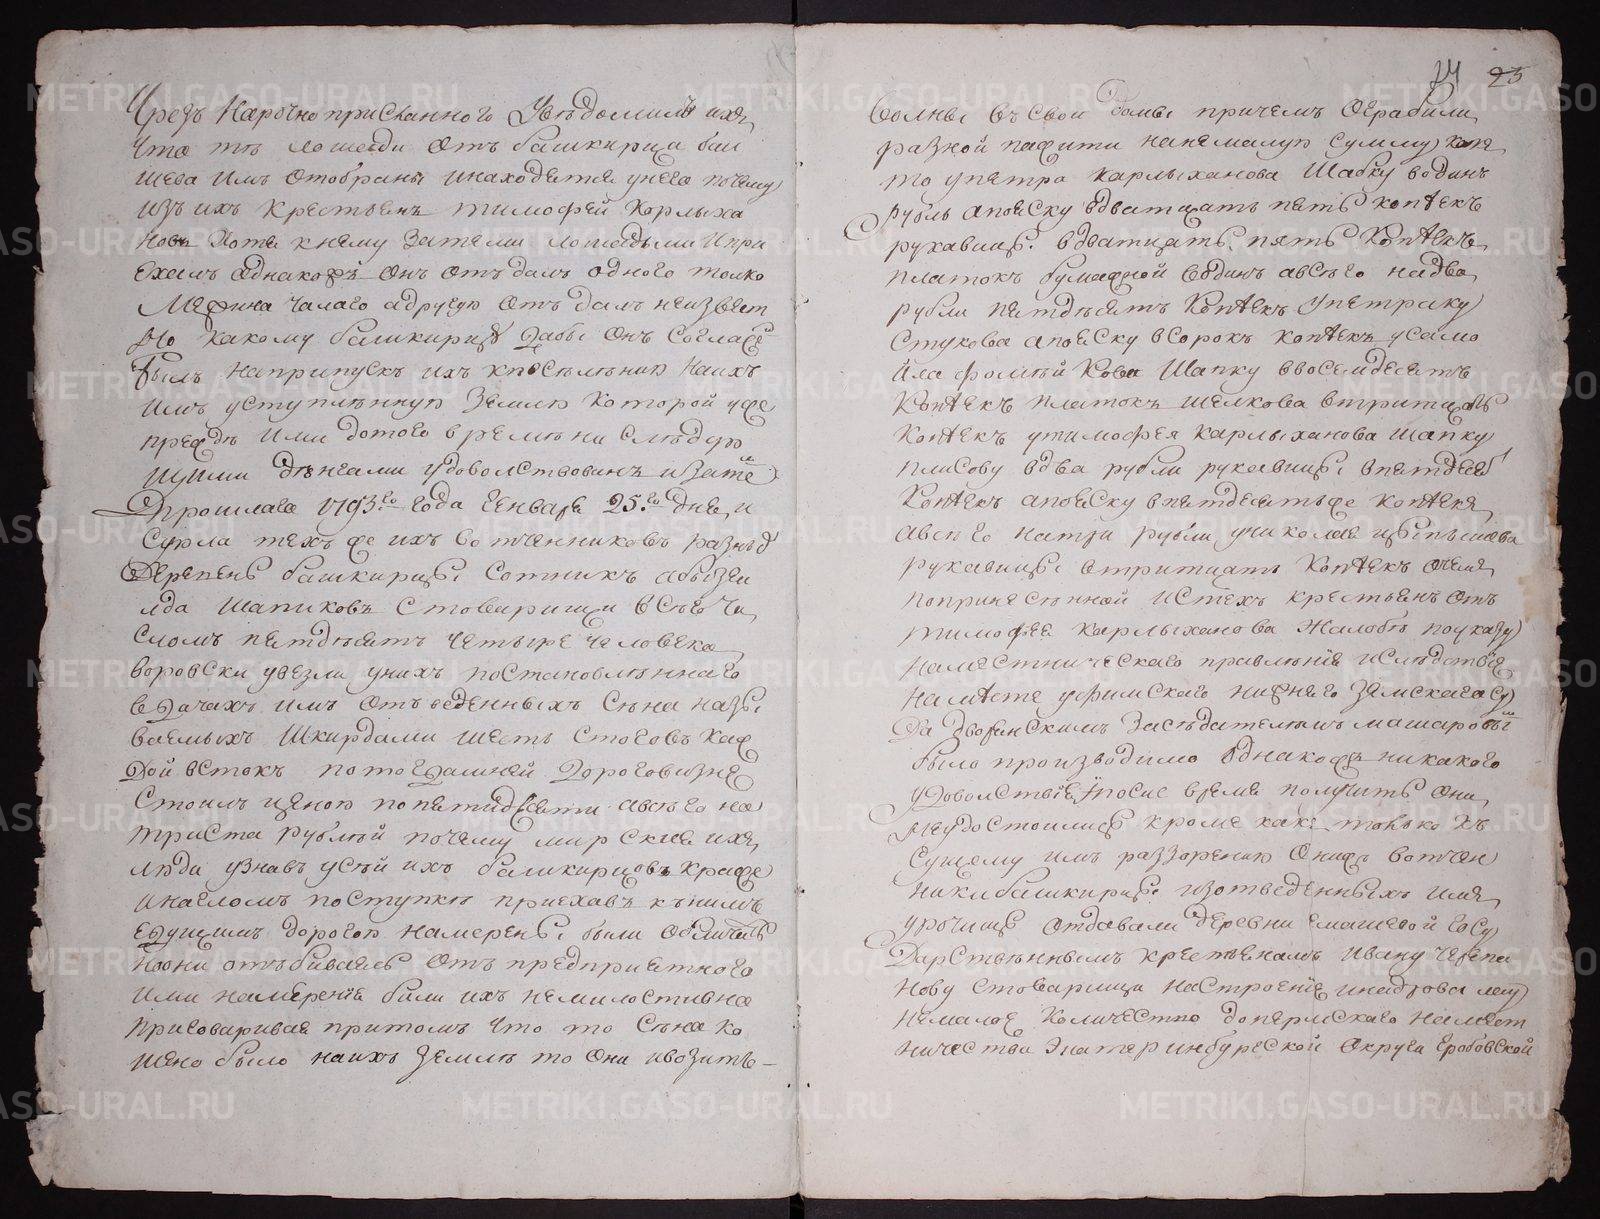 Чрезъ Нарочно присланного Уведомилъ ихъ
что те лошади Отъ башкирца баи
шева Имъ Отобраны инаходятся унего почему
изъ ихъ крестьянъ тимофей Карлыха
новъ Хотя кнему Затеми лошадьми Ипри
Ехалъ Однакожъ Онъ Отъдалъ одного толко
Мерина чалаго адругую Отъдалъ неизвест
но какому башкирцу дабы Онъ Согласе
былъ наприпускъ ихъ кпоселению Наихъ
имъ уступленную Землю Которой уже
предъ Ими дотого времени следую
щими деньгами удоволствованъ изате
прошлаго 1793го года Генваря 25го дня и
Сурла техъ же ихъ вотченниковъ разныхъ
Деревень башкирцы Сотникъ
лда Шапиковъ Стоварищи всего чи
сломъ петдесятъ четыре человека
воровски увезли унихъ постановленнаго
вдачахъ имъ Отъведенныхъ Сена назы
ваемыхъ Шкирдами шесть Стоговъ каж
дой встокъ потогдашней Дороговизне
Стоилъ ценою попятидесяти авсего на
триста рублей почему мирские ихъ
люди узнавъ усей ихъ башкирцовъ краже
инагломъ поступке приехавъ кънимъ
Едущимъ дорогою намерены были Обличить
но они отъбиваясь Отъ предприятного
ими намерения били ихъ немилостивна
приговаривая притомъ что то Сена ко
шено было наихъ земле то Они ивозить
24 25
Волны въ свои домы причемъ Ограбили
разной пажити нанемалую Сумму как
то упетра Карлыханова Шапку водинъ
рубль апояску вдватцать пять копеекъ
рукавицы вдватцать пять Копеекъ
платокъ бумажной водинъ авсего надва
рубли петдесятъ Копеекъ упетраку
Стукова апояску всорокъ копеекъ усамо
йла фомей Кова Шапку ввосемдесятъ
Копеекъ платокъ шелкова втритцать
Копеекъ утимофея Карлыханова шапку
плисову вдва рубли рукавицы впетдесят
Копеекъ апояску впетдесятже копеекъ
авсего натри рубли униколая
рукавицы втритцать Копеекъ очемъ
попринесенной Истехъ крестьянъ Отъ
тимофея Карлыханова Жалобе поуказу
наместническаго правления Иследствие
наместе уфимскаго нижнего Земскаго Су
Да дворянскимъ Заседателемъ машаровы
было производимо Однакожъ никакого
удоволствия Посие время получить Они
неудостоились кроме какъ только къ
Сущему имъ раззорению Онижъ вотчен
ники башкирцы изотведенныхъ имъ
урочищъ отдавали деревни Емашевой Госу
Дарственнымъ крестьянамъ Ивану Черепа
нову Стоварищи настроение инадрова лесу
немалое Количество допермскаго намест
ничества Экатеринбургской Округи Гробовской